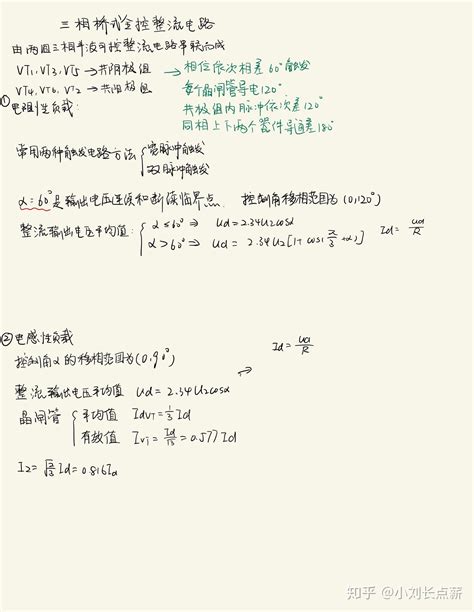 三相桥式全控整流电路
由两组三相半波可控整流电路串联而成
VT1,VT3,VT5→共阴极组 → 相位依次相差60°触发
VT4,VT6,VT2→共阳极组 每个晶闸管导电120°
①电阻性负载: 共极组内脉冲依次差120°
同相上下两个器件导通差180°
常用两种触发电路方法 { 宽脉冲触发
双脉冲触发
α=60°是输出电压连续和断续临界点. 控制角移相范围为(0,120°)
整流输出电压平均值: { α≤60° ⇒ Ud=2.34U2cosα Id=Ud/R
α>60° ⇒ Ud=2.34U2[1+cos(π/3+α)]
②电感性负载
控制角α的移相范围为(0,90°) Id=Ud/R
整流输出电压平均值 Ud=2.34U2cosα
晶闸管 { 平均值 IdVT=1/3Id
有效值 IVT=Id/√3=0.577Id
I2=√(2/3)Id=0.816Id
知乎 @小刘长点薪